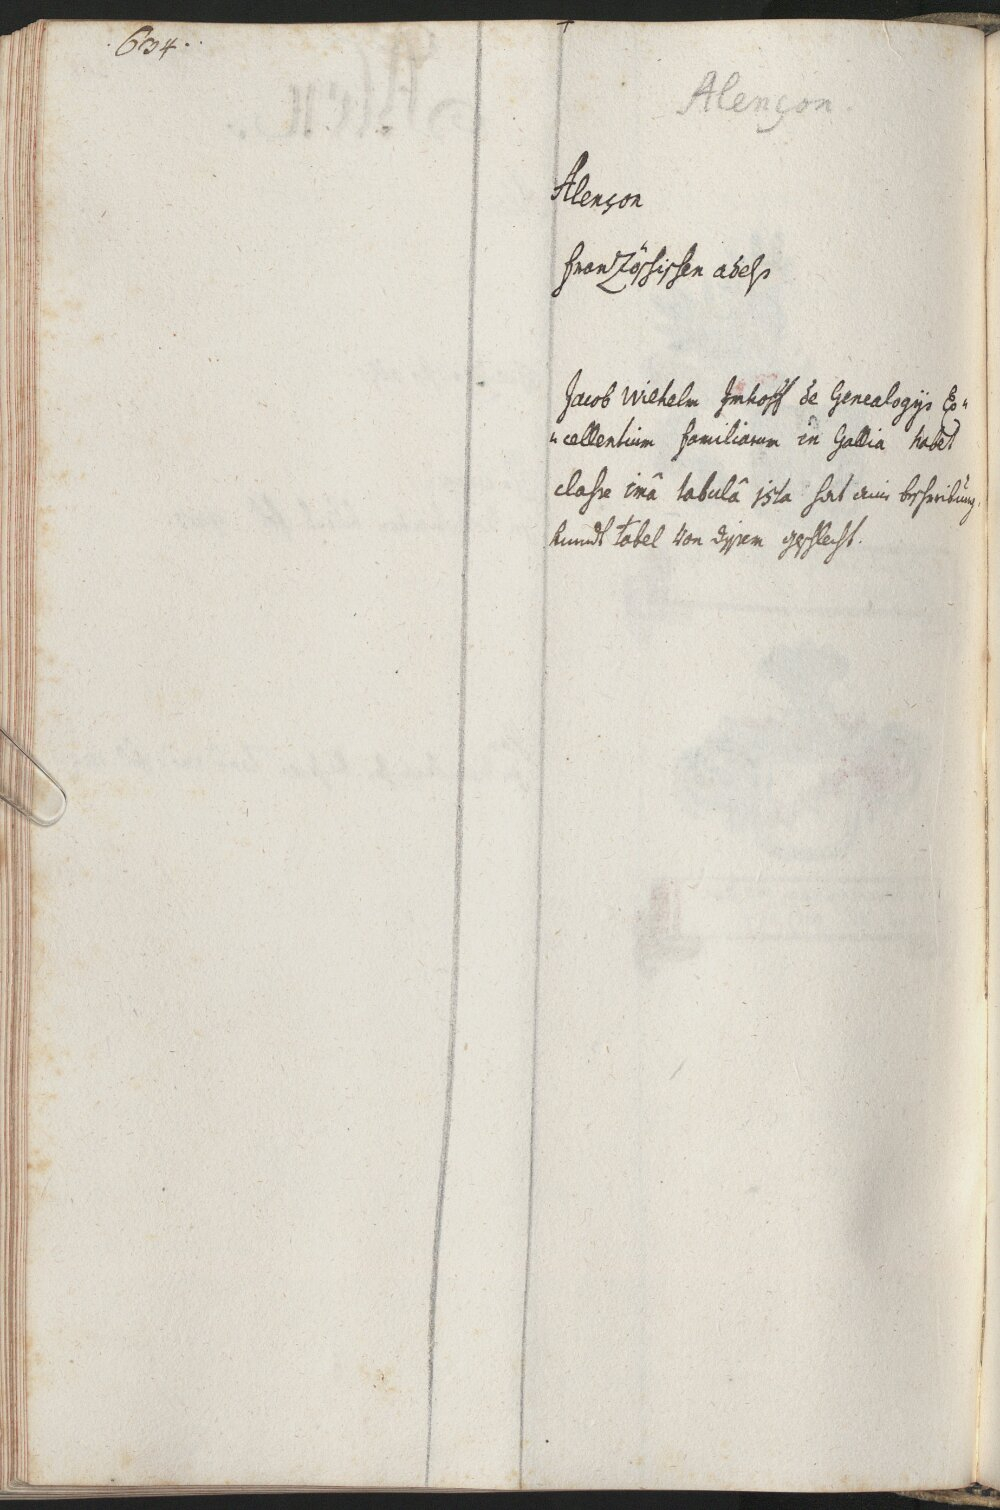 ·634··
Alençon.
Alençon
französischen adels
Jacob Wilhelm Imhoff de Genealogijs Ex„
„cellentium familiarum in Gallia habet
classe imâ tabulâ ista hat ein beschreibung,
unndt tabel von dissem geschlecht.